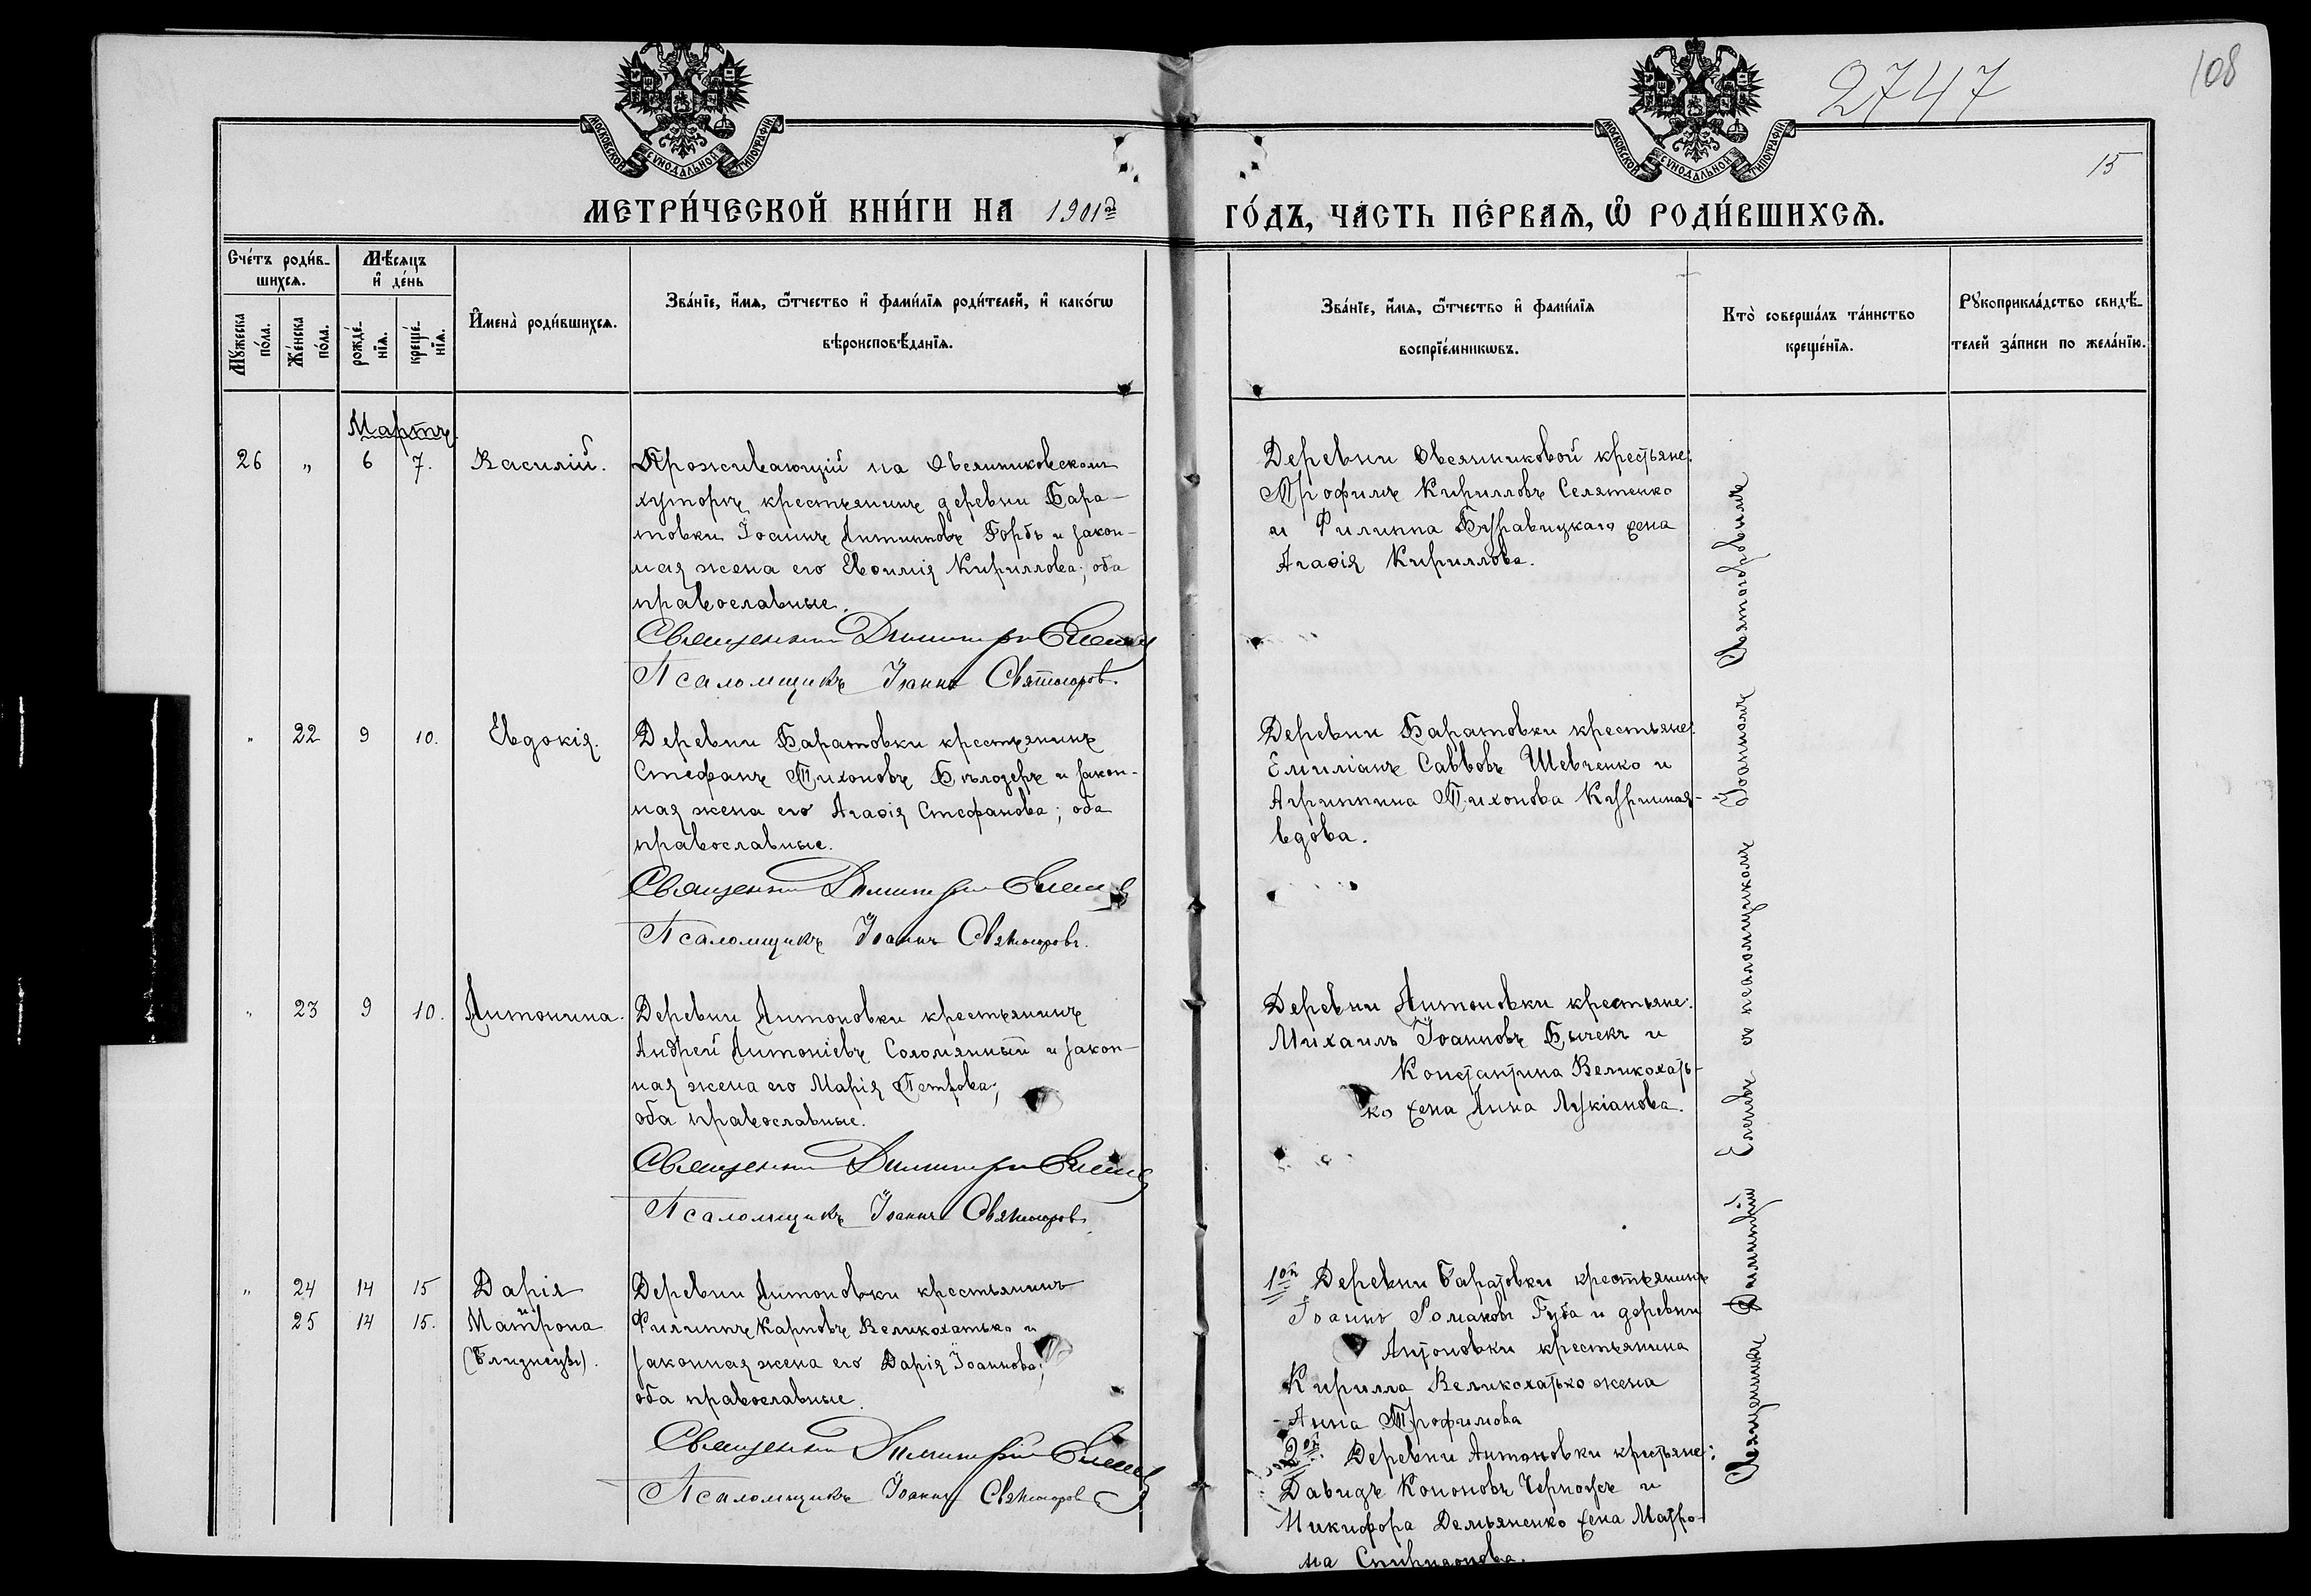 2747
108
МОСКОВСКОЙ СѴНОДАЛЬНОЙ ТИПОГРАФІИ
МОСКОВСКОЙ СѴНОДАЛЬНОЙ ТИПОГРАФІИ
15
МЕТРИ́ЧЕСКОЙ КНИ́ГИ НА 1901й
ГО́ДЪ, ЧА́СТЬ ПЕ́РВАѦ, Ѡ҆ РОДИ́ВШИХСѦ.
Сче́тъ роди́в-
шихсѧ.
Мѣ́сѧцъ
и҆ де́нь
Мꙋ́жеска по́ла.
Же́нска по́ла.
рожде́-
нїѧ.
креще́-
нїѧ.
И҆мена̀ роди́вшихсѧ.
Зва́нїе, и҆́мѧ, ѻ҆́тчество и҆ фами́лїѧ роди́телей, и҆ како́гѡ
вѣроисповѣ́данїѧ.
Зва́нїе, и҆́мѧ, ѻ҆́тчество и҆ фами́лїѧ
воспрїе́мникѡвъ.
Кто̀ соверша́лъ та́инство
креще́нїѧ.
Рꙋкоприкла́дство свидѣ́-
телей за́писи по жела́нїю.
Мартъ.
26 „ 6 7. Василій.
Проживающій на Овсянниковскомъ
хуторѣ крестьянинъ деревни Бара-
товки Іоаннъ Антиповъ Горбъ и закон-
ная жена его Евѳимія Кириллова; оба
православные.
Священникъ Димитрій Еленевъ
Псаломщикъ Іоаннъ Святогоровъ.
Деревни Овсянниковой крестьяне:
Трофимъ Кирилловъ Селятенко
и Филиппа Буравицкаго жена
Агаѳія Кириллова.
„ 22 9 10. Евдокія.
Деревни Баратовки крестьянинъ
Стефанъ Тихоновъ Бѣлозеръ и закон-
ная жена его Агаѳія Стефанова; оба
православные.
Священникъ Димитрій Еленевъ
Псаломщикъ Іоаннъ Святогоровъ.
Деревни Баратовки крестьяне:
Емиліанъ Саввовъ Шевченко и
Агриппина Тихонова Куринная-
вдова.
„ 23 9 10. Антонина.
Деревни Антоновки крестьянинъ
Андрей Антоніевъ Соломянный и закон-
ная жена его Марія Петрова;
оба православные.
Священникъ Димитрій Еленевъ
Псаломщикъ Іоаннъ Святогоровъ.
Деревни Антоновки крестьяне:
Михаилъ Іоанновъ Бычекъ и
Константина Великохать-
ко жена Анна Лукіанова.
„ 24 14 15 Дарія
и
25 14 15. Матрона
(близнецы).
Деревни Антоновки крестьянинъ
Филиппъ Карповъ Великохатько и
законная жена его Дарія Іоаннова;
оба православные.
Священникъ Димитрій Еленевъ
Псаломщикъ Іоаннъ Святогоровъ
1ой Деревни Баратовки крестьянинъ
Іоаннъ Романовъ Губа и деревни
Антоновки крестьянина
Кирилла Великохатько жена
Анна Трофимова
2ой Деревни Антоновки крестьяне:
Давидъ Кононовъ Черноусъ и
Никифора Демьяненко жена Матро-
на Спиридонова.
Священникъ Димитрій Еленевъ съ псаломщикомъ Іоанномъ Святогоровымъ